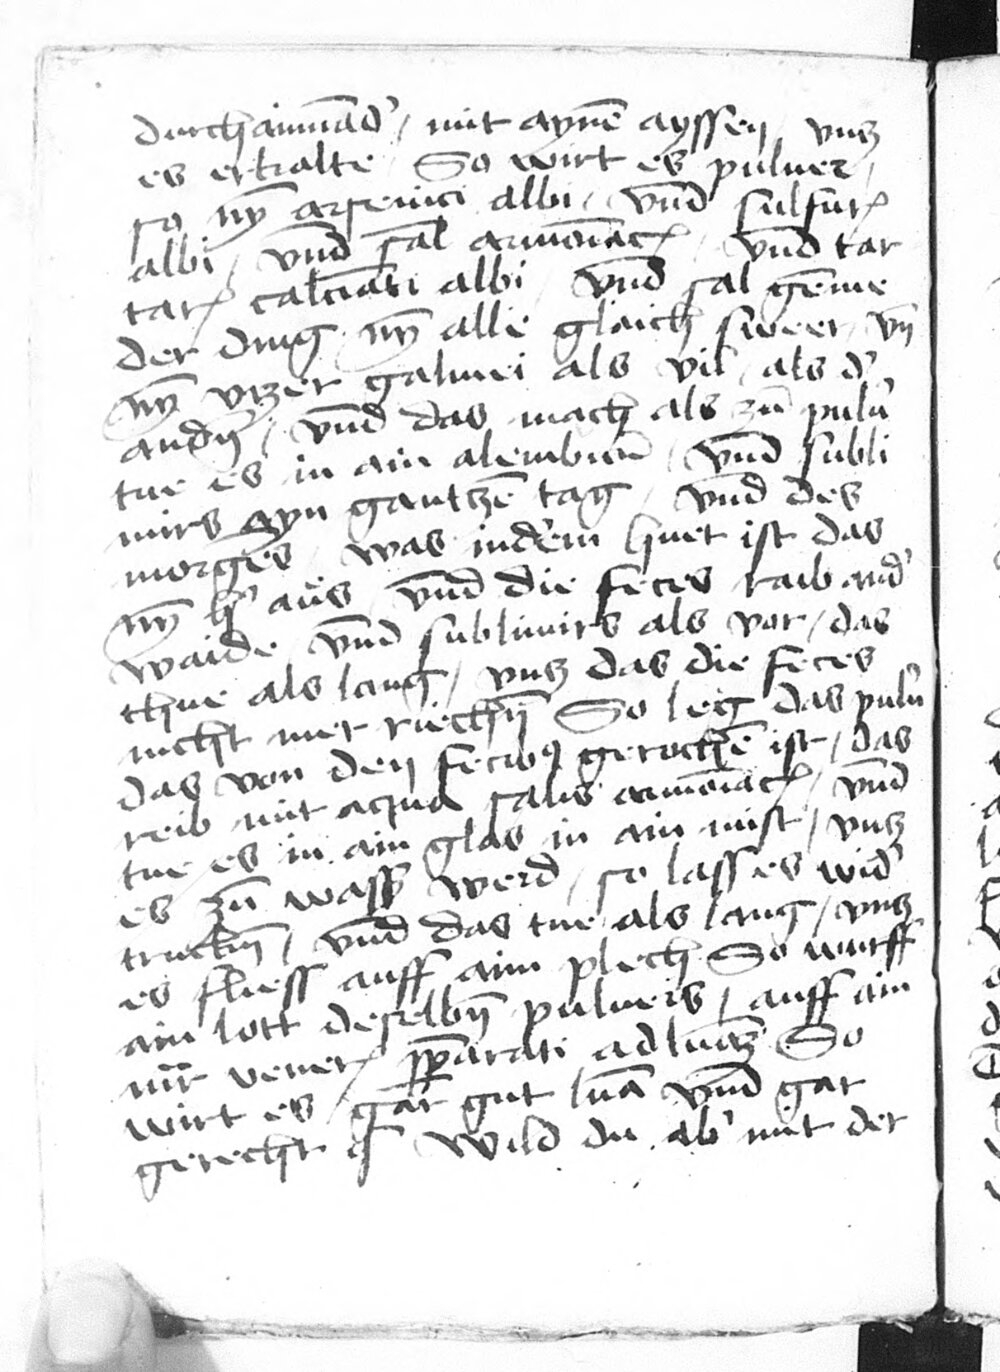 durchainnād' / mit aynē ayssen / vntz
es erkalte / So wirt es puluer /
so nȳ arsenici albi / vnd sulfur
albi / vnd sal armoniac / vnd tar
tar calcinati albi / vnd sal gēme
der ding nȳ alle glaich swer / vn̄
nȳ vtzer galmei als vil / als d'
andn̄ / vnd das mach als zu pulu'
tue es in ain alembicū / vnd subli
mirs ayn gantzē tag / vnd des
morgēs / was indem huet ist das
nȳ h' aus / vnd die feces raib and'
waide / vnd sublimirs als vor / das
thue als lang / vntz das die feces
nicht mer riechn̄ So leg das pulu'
das von den fecibꝰ gerochē ist / das
reib mit aqua salis armoniac / vnd
tue es in ain glas in ain mist / vntz
es zu wass' werd / so lass es wid'
truckn̄ / vnd das tue als lang / vntz
es fliess auff aim plech So wurff
ain lott deselbn̄ puluers / auff ain
mr vener p̄parati ad lunā So
wirt es gar gut lunā vnd gar
gerecht Wild du ab' mit der